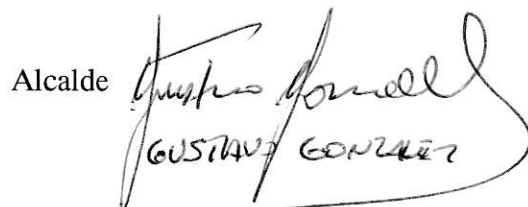 Alcalde Gustavo Gonzalez
GUSTAVO GONZALEZ